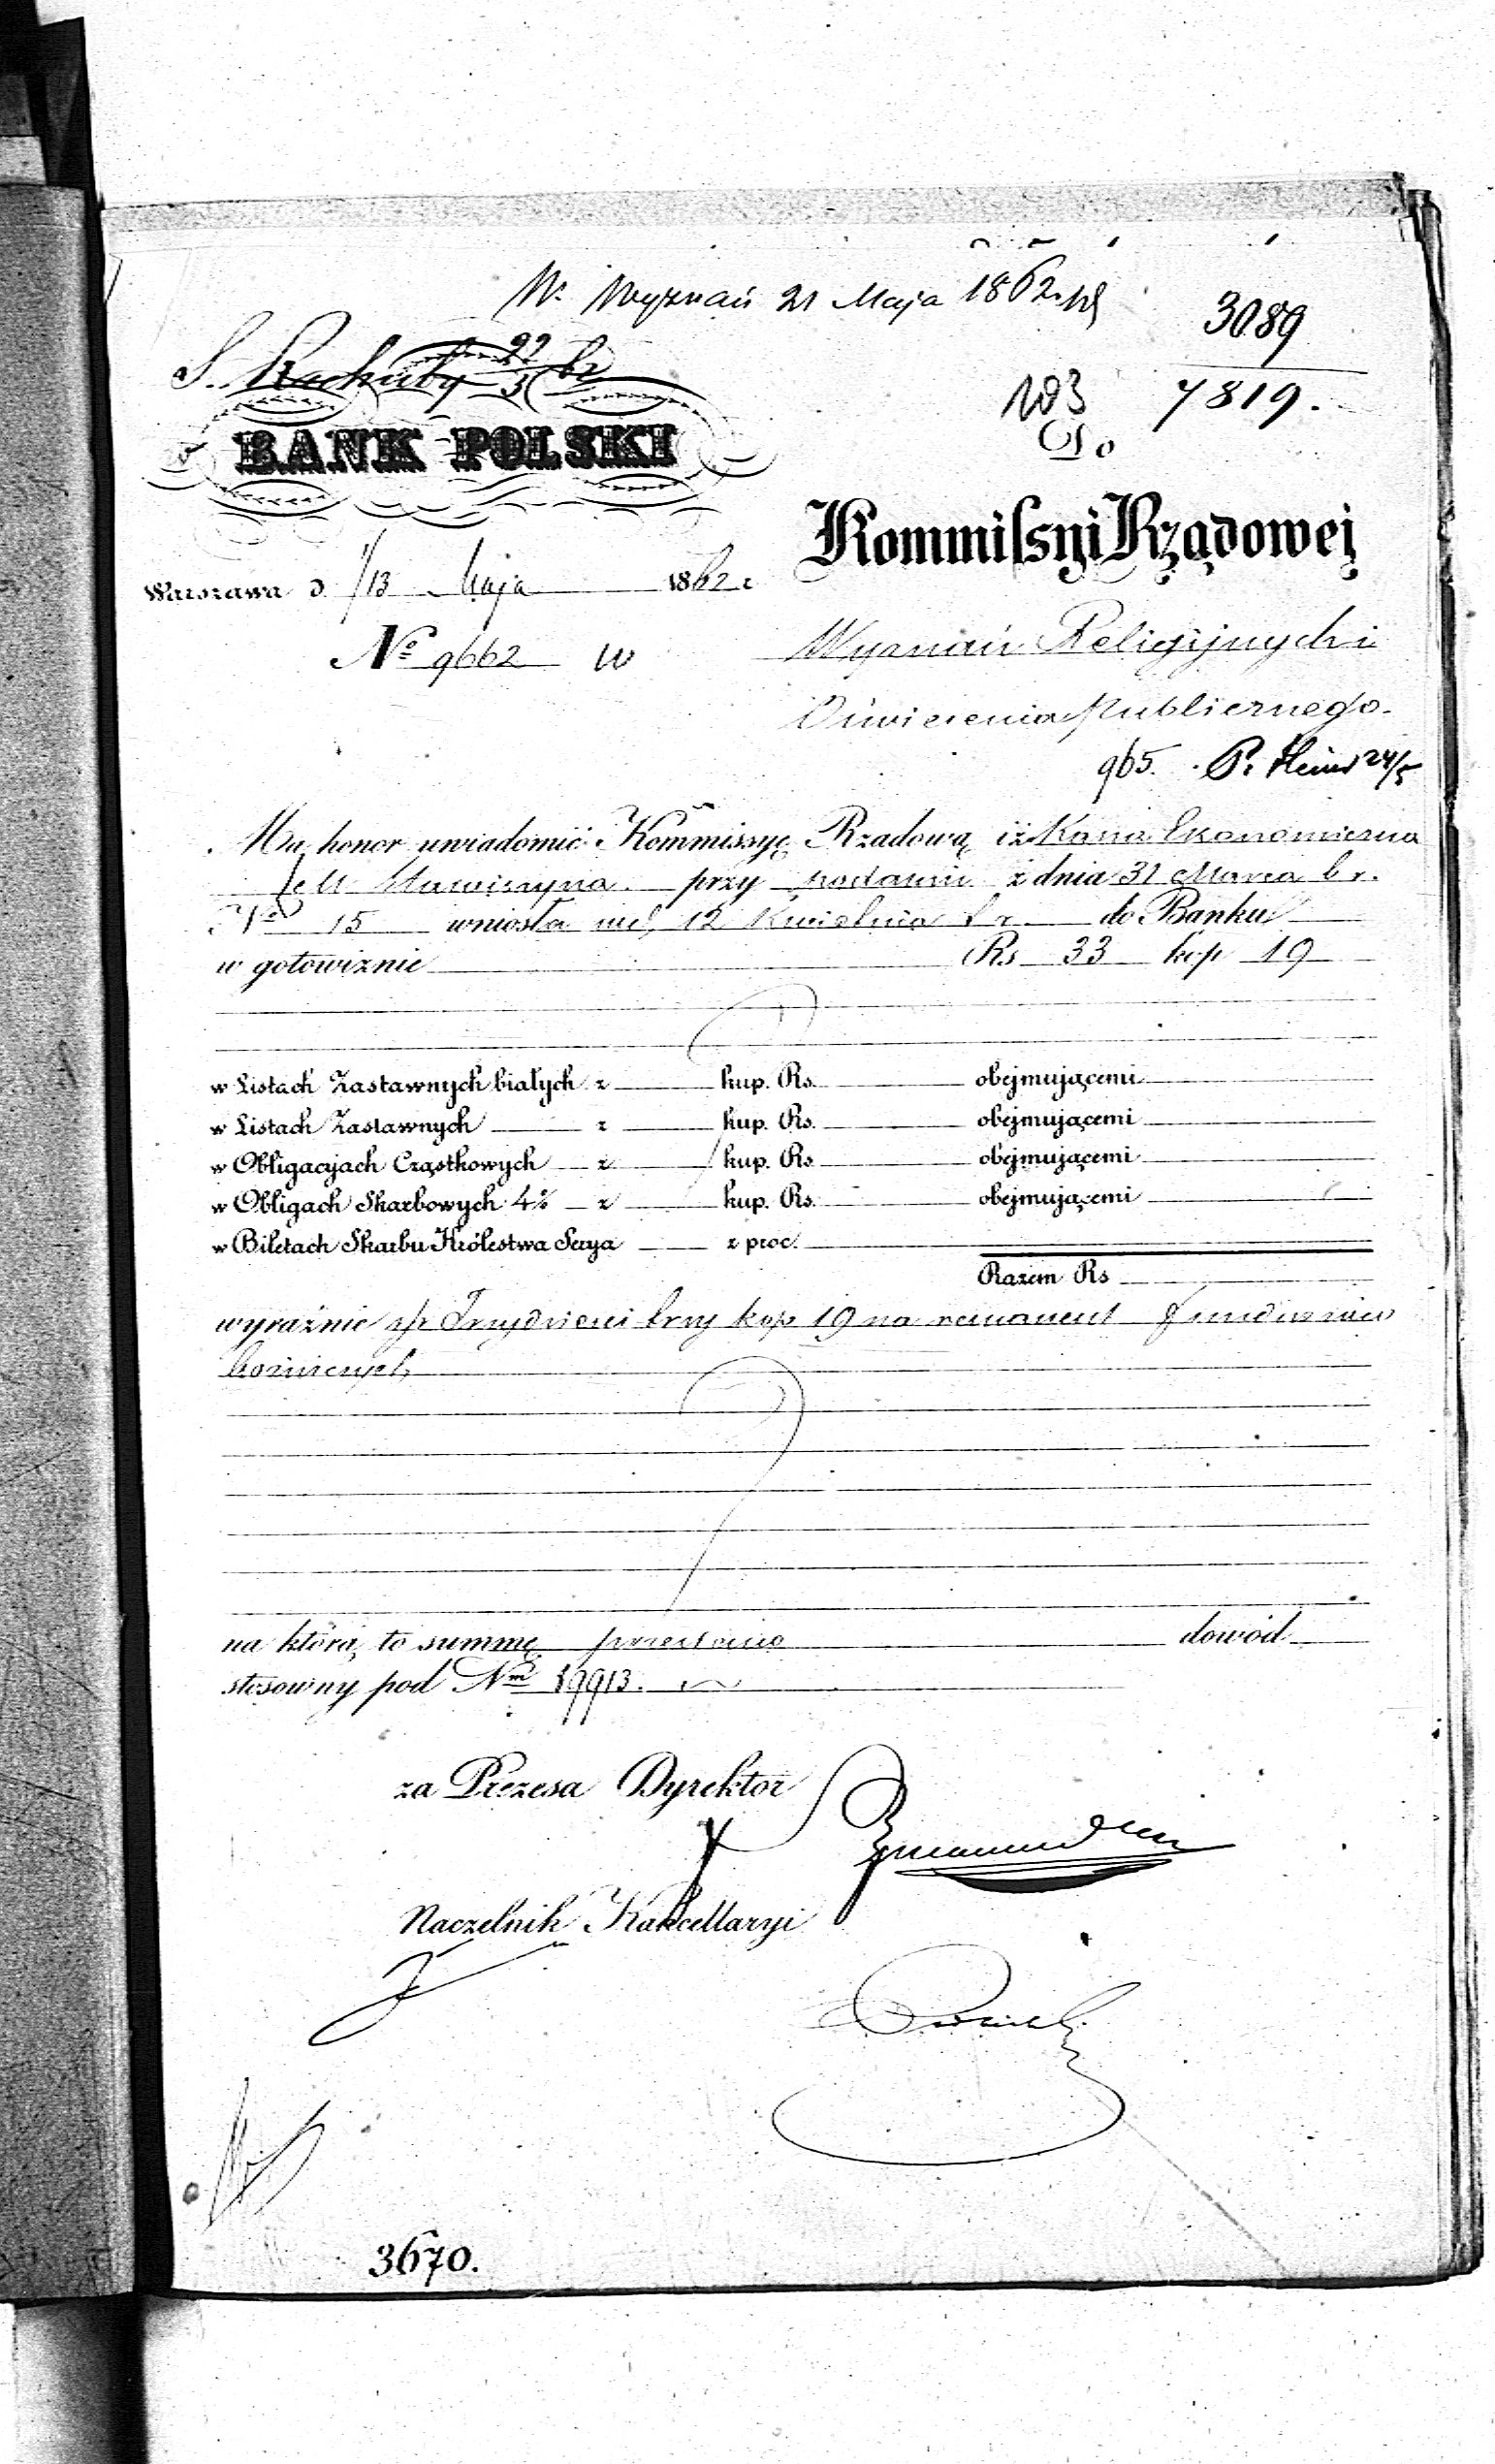 W. Wyznań 21 Maja 1862 r
3089
S. Rachuby 22/5 br
103 7819.
BANK POLSKI
Do
Kommissyi Rządowej
Warszawa d 1/13 Maja 1862 r
Wyznań Religijnych i
Nº 9662 W
Oświecenia Publicznego.
965. P. 24/5
Ma honor uwiadomić Kommissyę Rządową iż Kassa Ekonomiczna
M Stawiszyna przy podaniu z dnia 31 Marca b r.
Nr 15 wniosła w d, 12 Kwietnia b r. do Banku
w gotowiznie Rs 33 kop 19
w Listach Zastawnych białych z kup. Rs. obejmującemi
w Listach Zastawnych z kup. Rs. obejmującemi
w Obligacyjach Cząstkowych z kup. Rs obejmującemi
w Obligach Skarbowych 4% z kup. Rs. obejmującemi
w Biletach Skarbu Królestwa Serya z proc.
Razem Rs
wyraźnie rs Trzydzieści trzy kop 19 na remanent Funduszów
bożniczych
na którą to summę przesłano dowód
stosowny pod Nm 19913.
za Prezesa Dyrektor
Naczelnik Kancellaryi
3670.